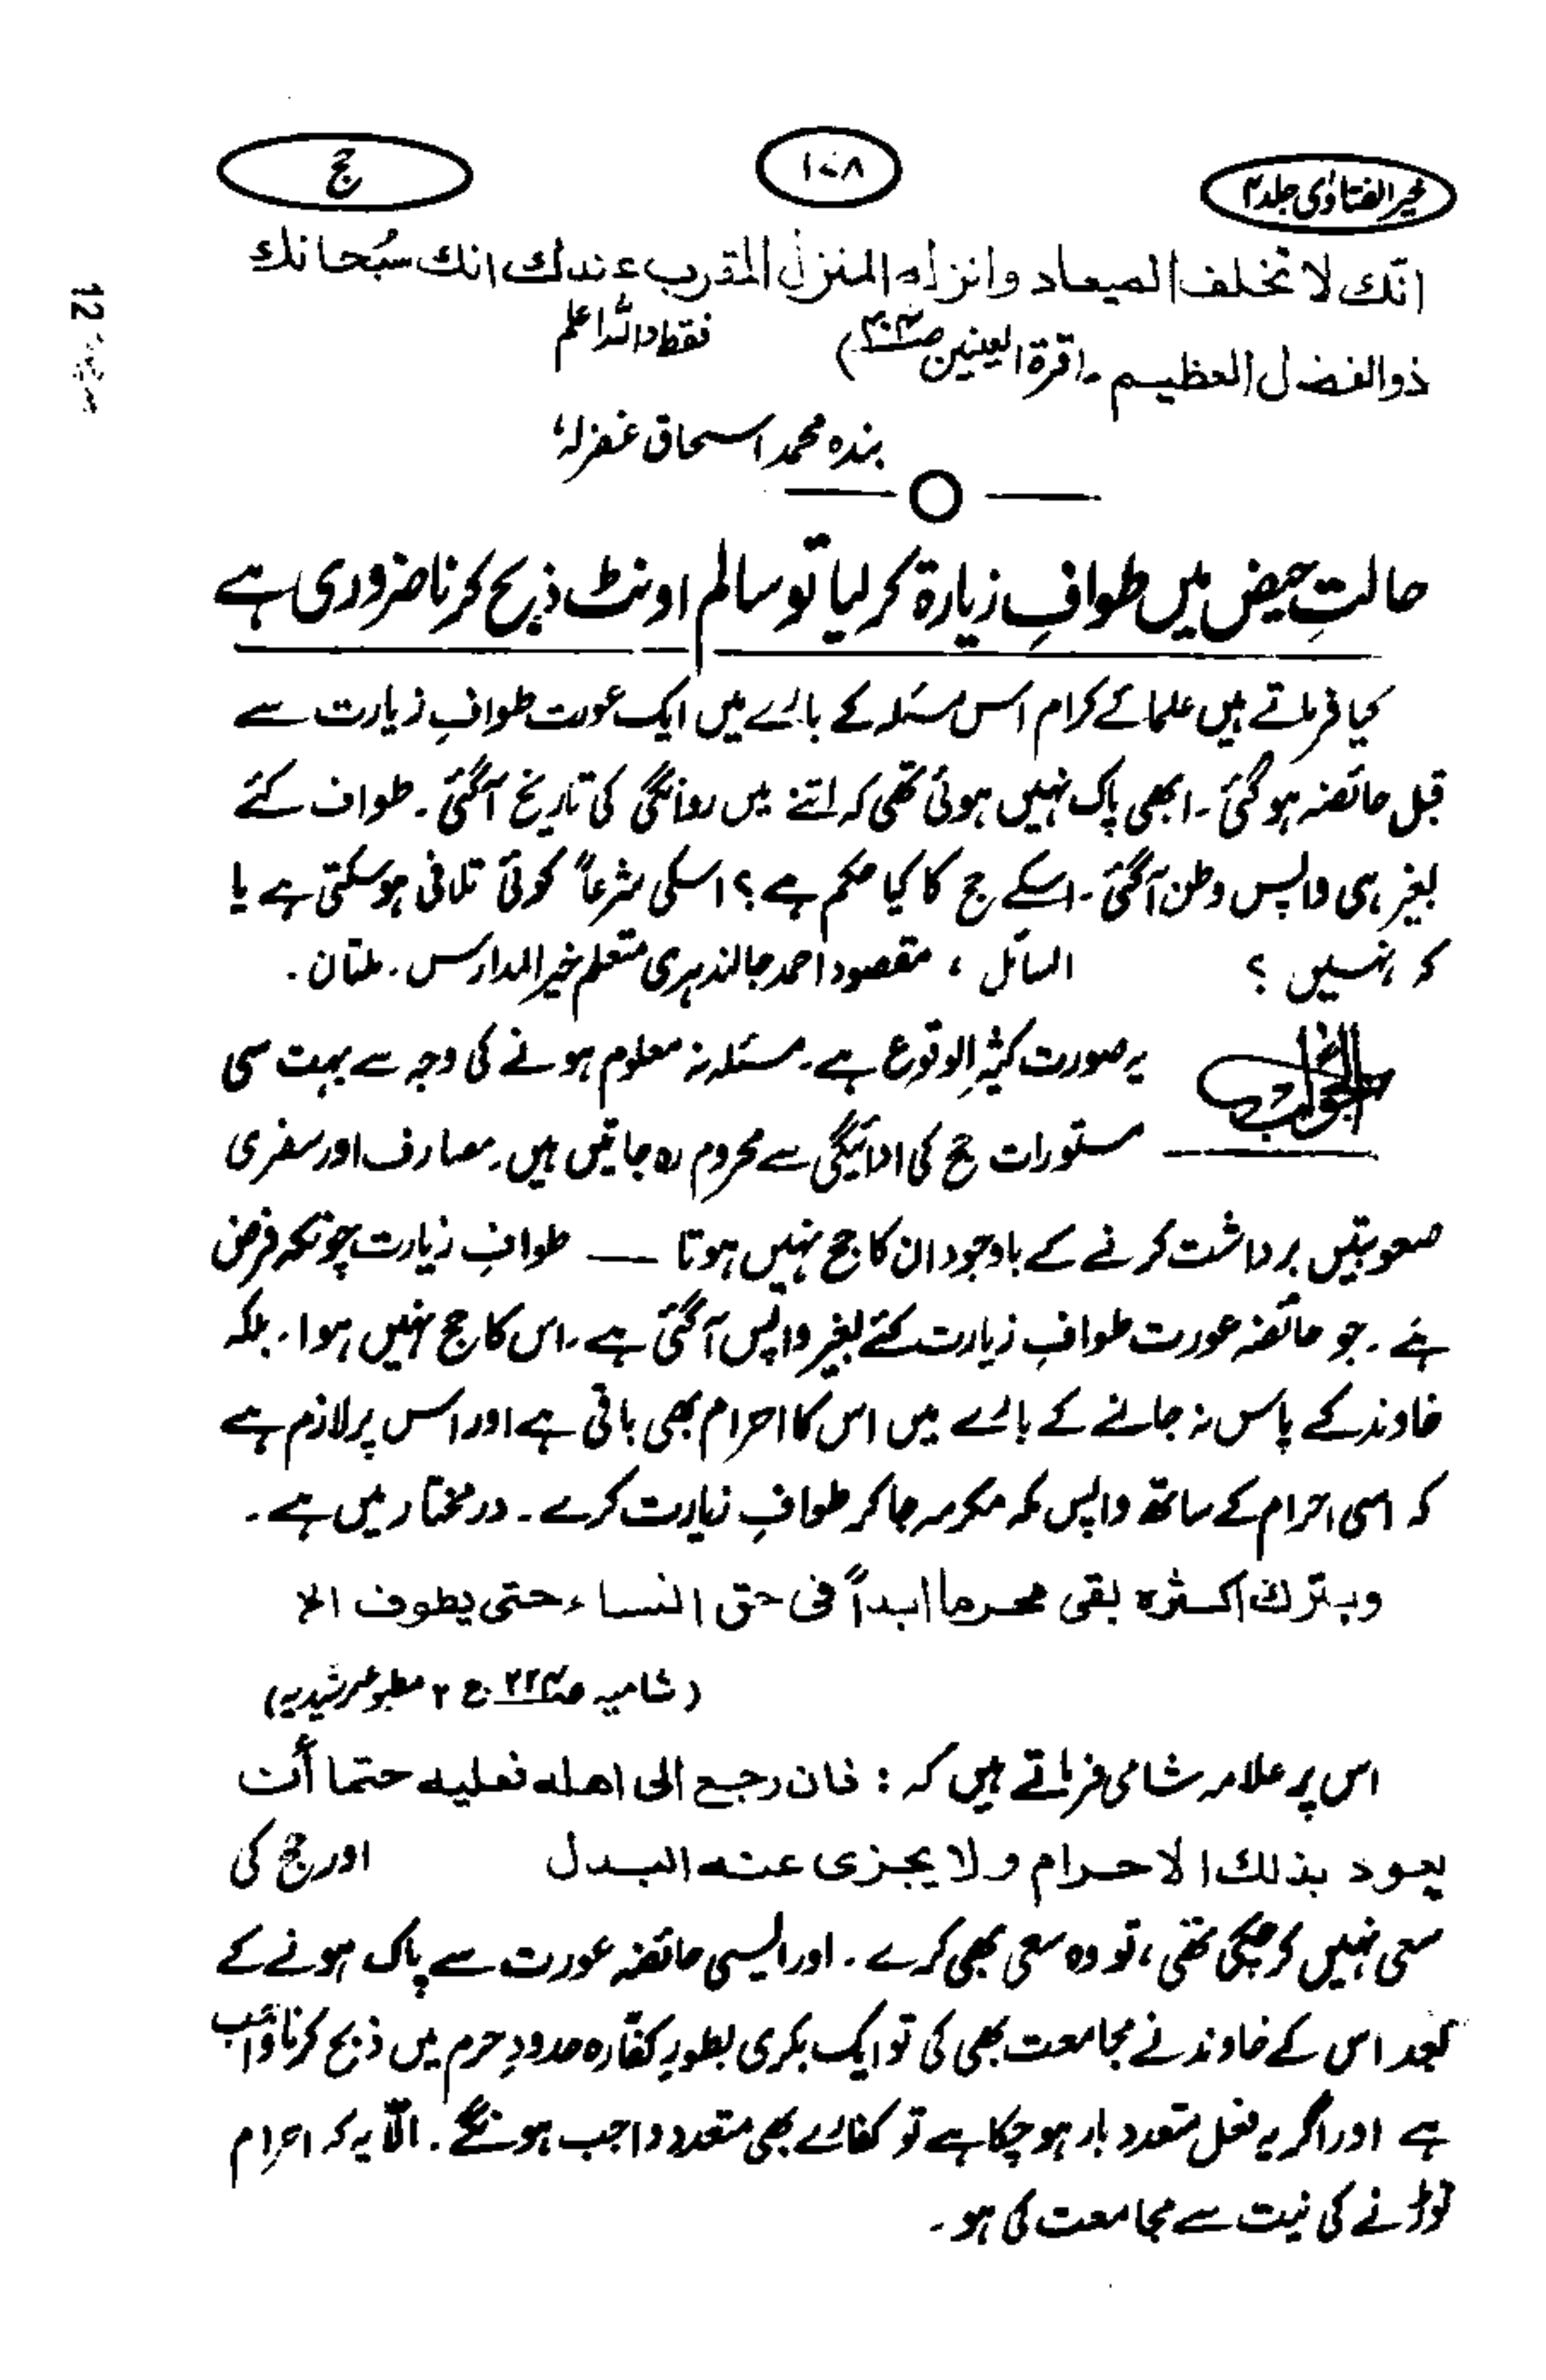 خیر الفتاویٰ جلد ۴
۱۷۸
حج
انّك لا تخلف الميعاد وانزله المنزل المقرب عندك انك سبُحانك
ذو الفضل العظيم ـ (قرۃ العینین ص۲۰۳) فقط واللہ اعلم
بندہ محمد اسحاق غفرلہٗ
حالتِ حیض میں طوافِ زیارۃ کر لیا تو سالم اونٹ ذبح کرنا ضروری ہے
کیا فرماتے ہیں علمائے کرام اس مسئلہ کے بارے میں ایک عورت طوافِ زیارت سے
قبل حائضہ ہو گئی۔ ابھی پاک نہیں ہوئی تھی کہ اتنے میں روانگی کی تاریخ آ گئی۔ طواف کئے
بغیر ہی واپس وطن آ گئی۔ اسکے حج کا کیا حکم ہے؟ اسکی شرعاً کوئی تلافی ہو سکتی ہے یا
کہ نہیں ؟ السائل ، مقصود احمد جالندہری متعلم خیر المدارس۔ ملتان۔
الجواب
یہ صورت کثیر الوقوع ہے۔ مسئلہ نہ معلوم ہونے کی وجہ سے بہت سی
مستورات حج کی ادائیگی سے محروم رہ جاتیں ہیں۔ مصارف اور سفری
صعوبتیں برداشت کرنے کے باوجود ان کا حج نہیں ہوتا — طوافِ زیارت چونکہ فرض
ہے۔ جو حائضہ عورت طوافِ زیارت کئے بغیر واپس آ گئی ہے۔ اس کا حج نہیں ہوا۔ بلکہ
خاوند کے پاس نہ جانے کے بارے میں اس کا احرام بھی باقی ہے اور اس پر لازم ہے
کہ اسی احرام کے ساتھ واپس مکہ مکرمہ جا کر طوافِ زیارت کرے۔ درمختار میں ہے۔
وبترك اكثره بقى محرما ابداً فى حق النساء حتى يطوف الخ
(شامیہ ص۲۲۳ ج ۲ مطبوعہ رشیدیہ)
اس پر علامہ شامی فرماتے ہیں کہ : فان رجع الى اهله فعليه حتما أن
يعود بذلك الاحرام ولا يجزى عنه البدل اور حج کی
سعی نہیں کر چکی تھی، تو وہ سعی بھی کرے۔ اور ایسی حائضہ عورت سے پاک ہونے کے
بعد اس کے خاوند نے مجامعت بھی کی تو ایک بکری بطور کفّارہ حدودِ حرم میں ذبح کرنا واجب
ہے اور اگر یہ فعل متعدد بار ہو چکا ہے تو کفارے بھی متعدد واجب ہونگے۔ الّا یہ کہ احرام
توڑنے کی نیت سے مجامعت کی ہو۔
12